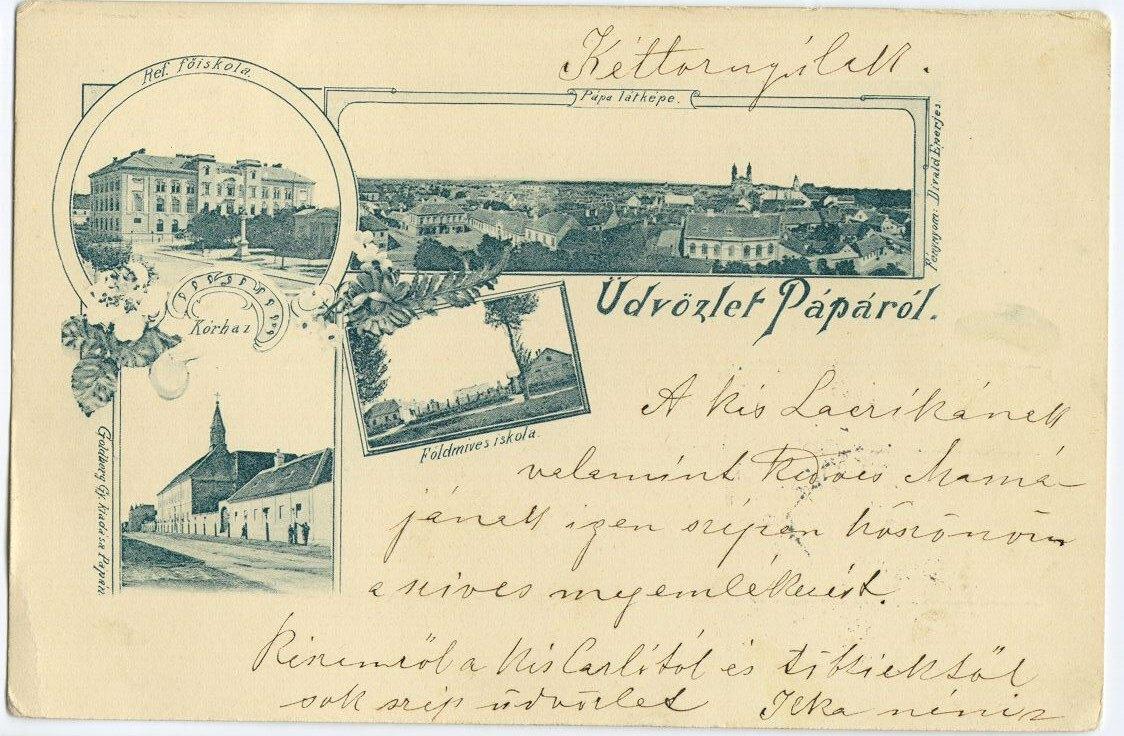 Kéttornyúlak.
Ref. főiskola.
Pápa látképe.
Fénynyom. Divald Eperjes.
Üdvözlet Pápáról.
Kórház
Földmíves iskola.
Goldberg Gy. kiadása Pápán
A kis Laczikának
valamint kedves Mamá-
jának igen szépen köszönöm
a szíves megemlékezést.
Részemről a kis Carlótól és többiektől
sok szép üdvözlet Ilka néni